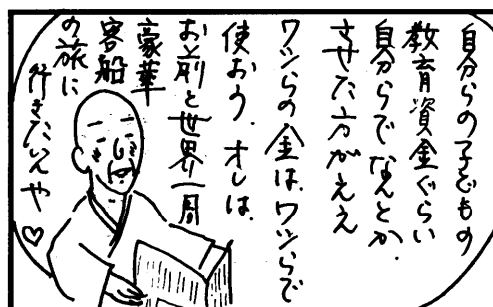 自分らの子どもの
教育資金ぐらい
自分らでなんとか
させた方がええ
ワシらの金は、ワシらで
使おう。オレは、
お前と世界一周
豪華
客船
の旅に
行きたいんや♡